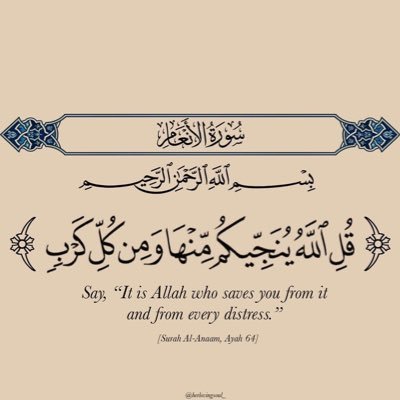 سُورَةُ الأَنْعَامِ
بِسْمِ ٱللَّهِ ٱلرَّحْمَٰنِ ٱلرَّحِيمِ
قُلِ ٱللَّهُ يُنَجِّيكُم مِّنْهَا وَمِن كُلِّ كَرْبٍ
Say, “It is Allah who saves you from it
and from every distress.”
[Surah Al-Anaam, Ayah 64]